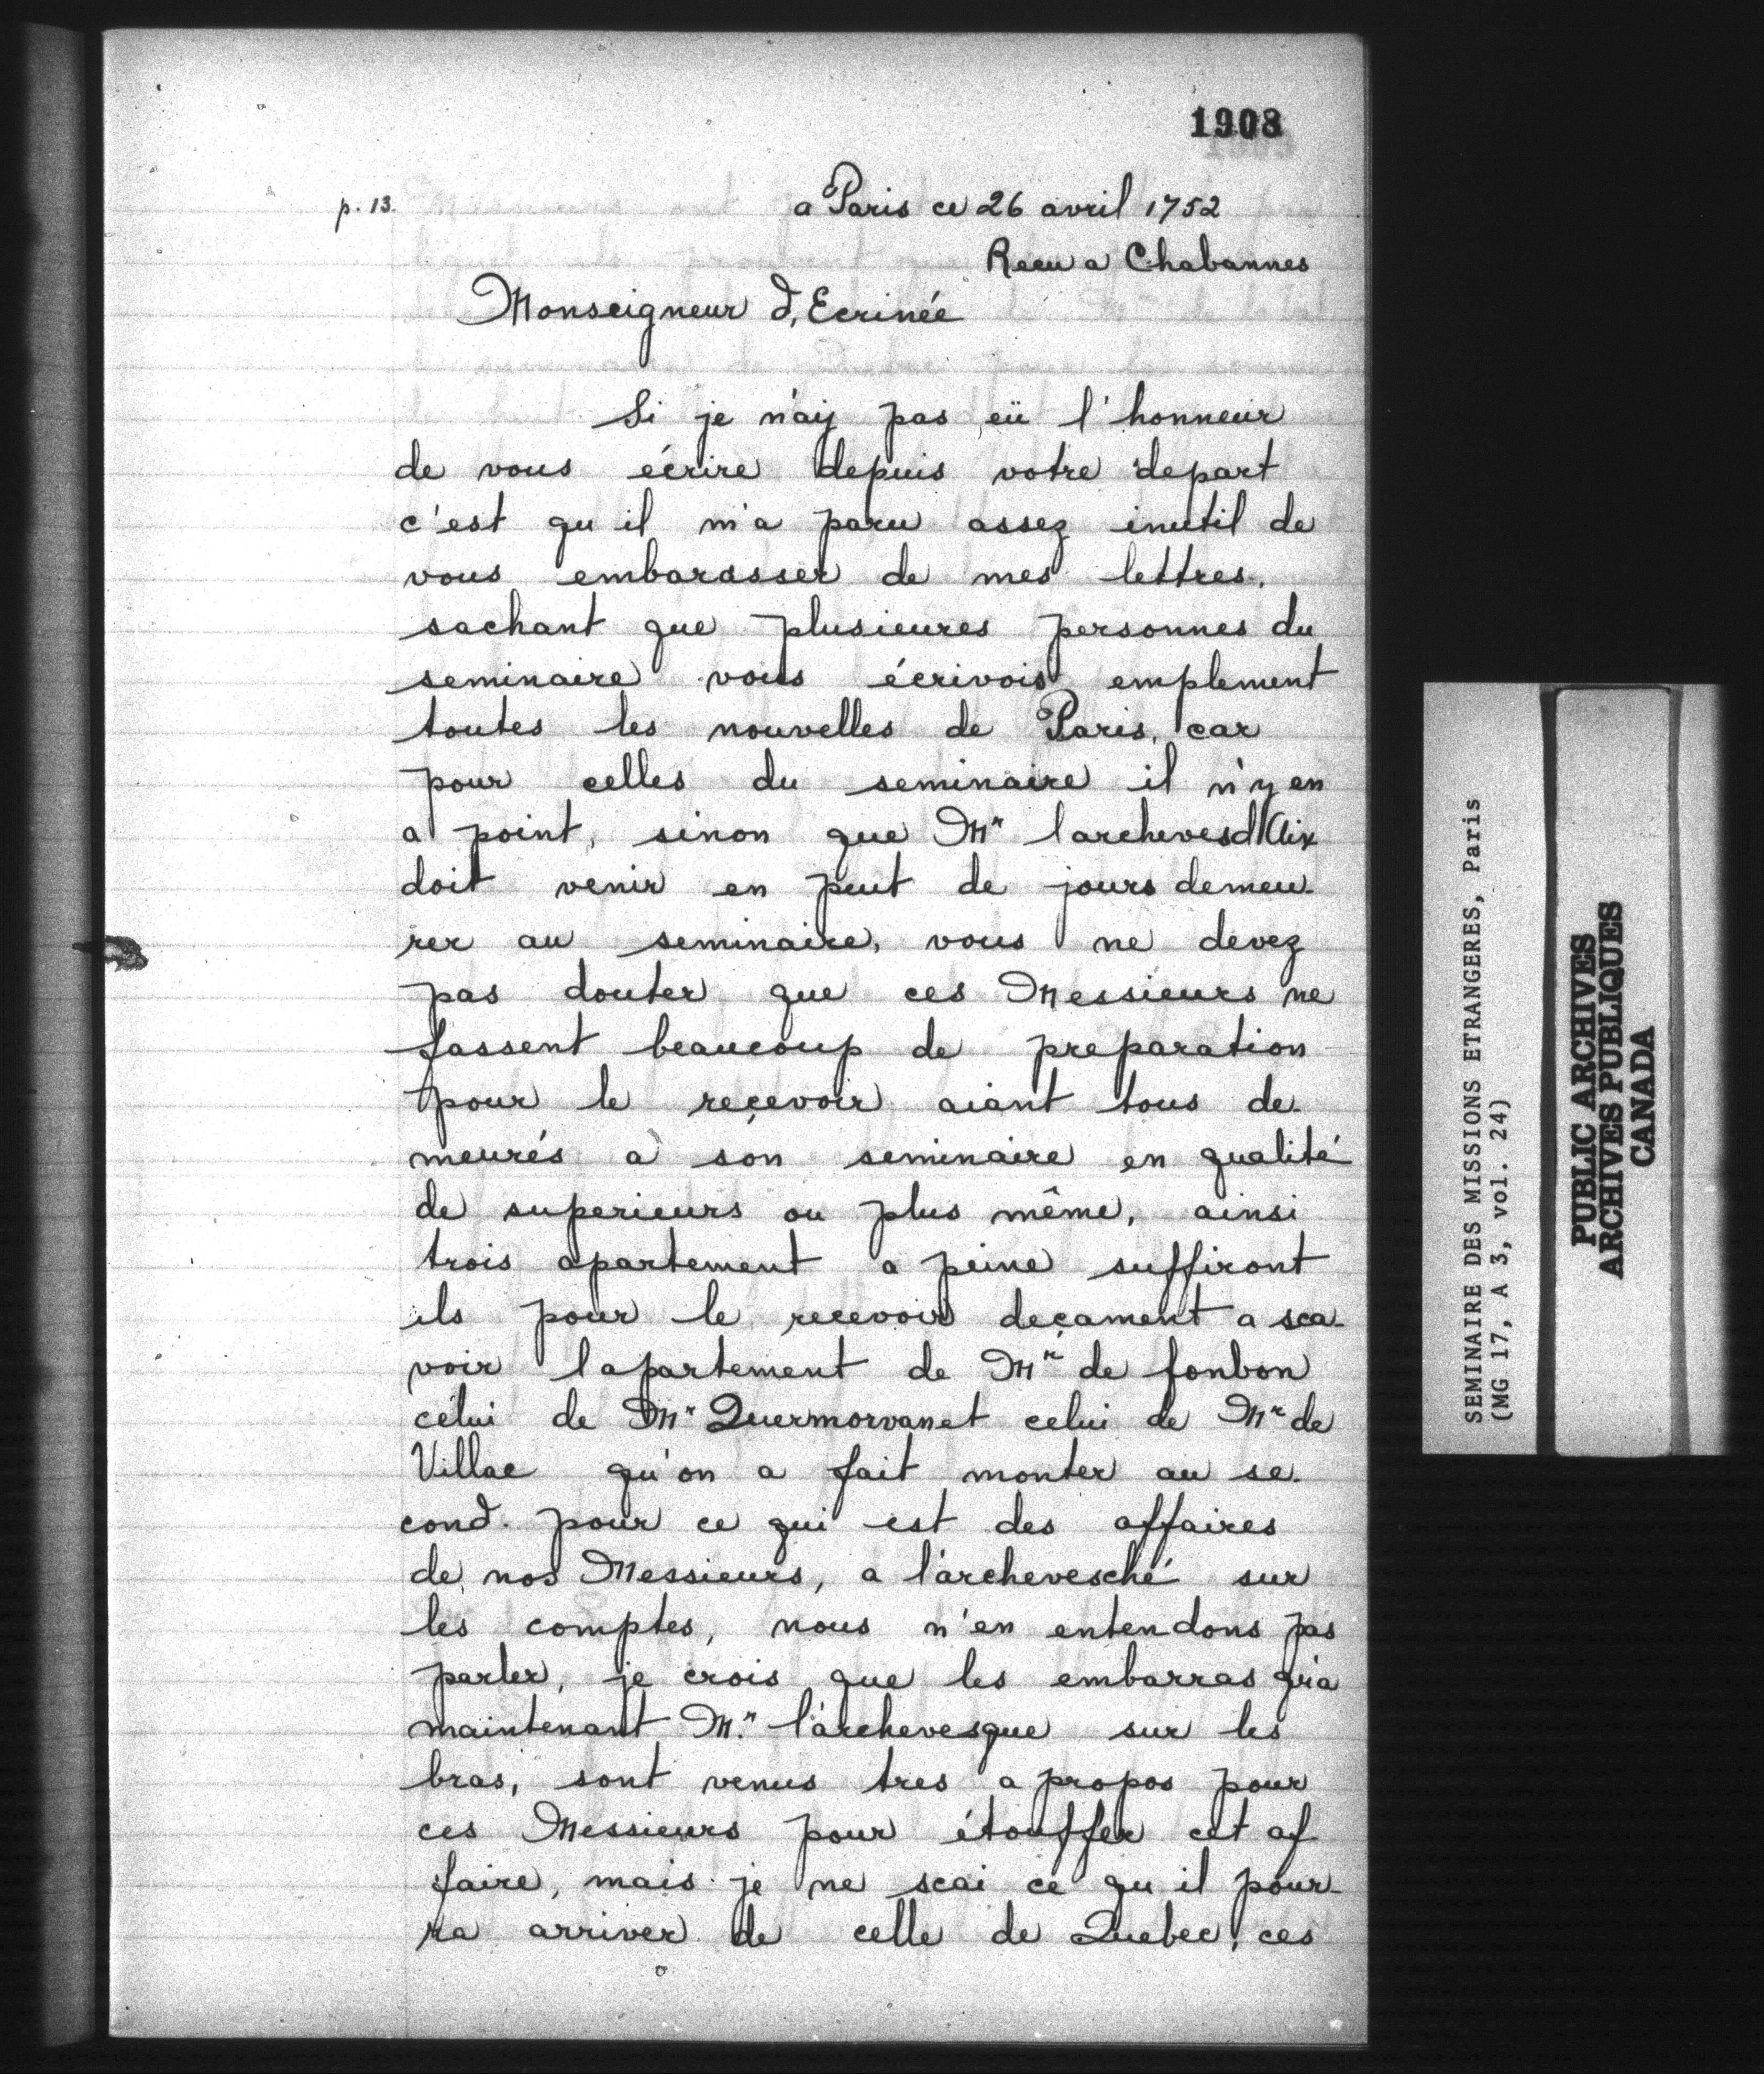 1908
p. 13.
a Paris ce 26 avril 1752
Recu a Chabannes
Monseigneur d, Ecrinée
Si je n'aij pas eü l'honneur
de vous écrire depuis votre depart
c'est qu il m'a paru assez inutil de
vous embarasser de mes lettres,
sachant que plusieures personnes du
seminaire vous écrivois emplement
toutes les nouvelles de Paris, car
pour celles du seminaire il n'y en
a point, sinon que Mr larchevesd'Aix
doit venir en peut de jours demeu-
rer au seminaire, vous ne devez
pas douter que ces Messieurs ne
fassent beaucoup de preparation
pour le reçevoir aiant tous de-
meurés a son seminaire en qualité
de superieurs ou plus même, ainsi
trois apartement a peine suffiront
ils pour le recevoir deçament a sca-
voir lapartement de Mr de fonbon
celui de Mr Quermorvanet celui de Mr de
Villae qu'on a fait monter au se-
cond. pour ce qui est des affaires
de nos Messieurs, a l'archevesché sur
les comptes, nous n'en entendons pas
parler, je crois que les embarras qu'a
maintenant M.r l'archevesque sur les
bras, sont venus tres a propos pour
ces Messieurs pour étouffer cet af
faire, mais je ne scai ce qu il pour-
ra arriver de celle de Quebec, ces
SEMINAIRE DES MISSIONS ETRANGERES, Paris
(MG 17, A 3, vol. 24)
PUBLIC ARCHIVES
ARCHIVES PUBLIQUES
CANADA